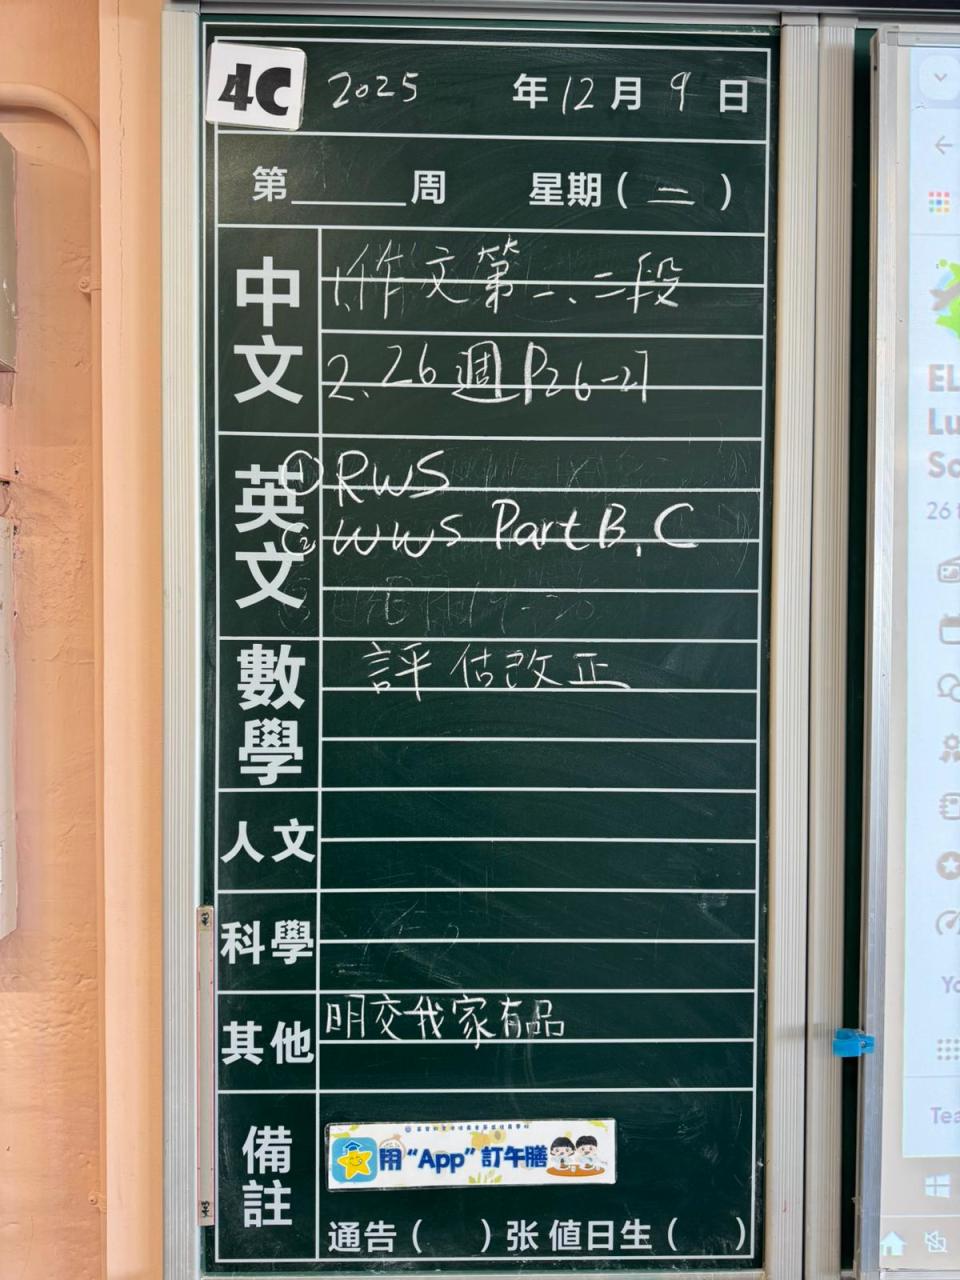 4C 2025 年12月9日
第______周 星期(二)
中文
1.作文第一、二段
2. 26週P26-27
英文
① RWS
② WWS Part B, C
數學
評估改正
人文
科學
其他
明交我家有品
備註
用“App”訂午膳
通告( )张 值日生( )
EL
Lu
Sc
26 t
Yo
Tea